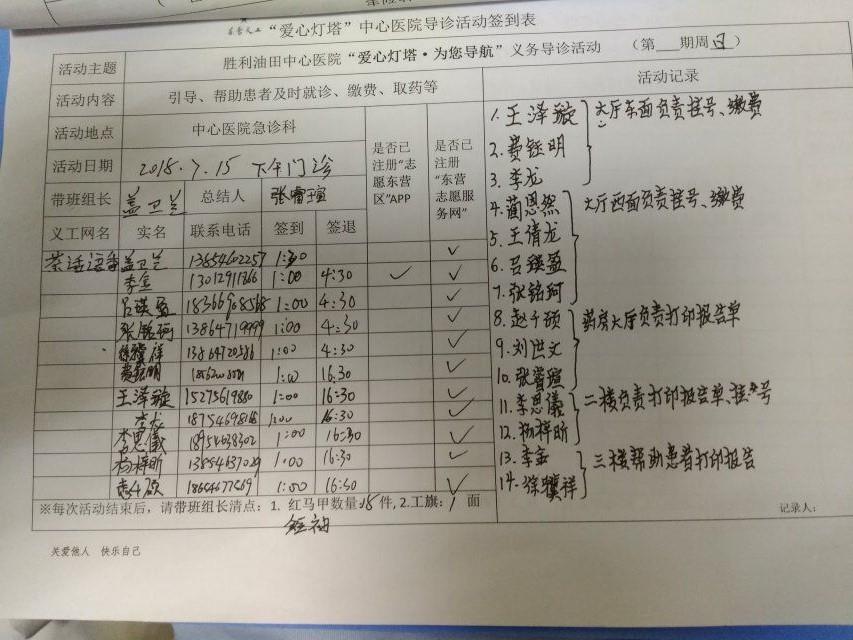 “爱心灯塔”中心医院导诊活动签到表
活动主题 胜利油田中心医院“爱心灯塔·为您导航”义务导诊活动 （第 期周日）
活动内容 引导、帮助患者及时就诊、缴费、取药等
活动地点 中心医院急诊科
活动日期 2018.7.15 下午门诊
带班组长 盖卫兰 总结人 张睿瑄
是否已注册“志愿东营区”APP
是否已注册“东营志愿服务网”
义工网名 实名 联系电话 签到 签退
茶话语香 盖卫兰 13854602257 1:30 ✓
李金 13012911366 1:00 4:30 ✓ ✓
吕瑛盈 18366908568 1:00 4:30 ✓
张铭珂 13864719999 1:00 4:30 ✓
徐骥祥 13864720586 1:00 4:30 ✓
费钰明 1:00 16:30 ✓
王泽璇 15275619880 1:00 16:30 ✓
李龙 18754698168 1:00 16:30 ✓
李思仪 18954638302 1:00 16:30 ✓
杨梓昕 13854637029 1:00 16:30 ✓
赵千硕 18654677569 1:00 16:30 ✓
※每次活动结束后，请带班组长清点：1. 红马甲数量:15件, 2.工旗: 1 面
关爱他人 快乐自己
活动记录
1. 王泽璇
2. 费钰明
3. 李龙
大厅东面负责挂号、缴费
4. 蔺恩然
5. 王倩龙
6. 吕瑛盈
7. 张铭珂
大厅西面负责挂号、缴费
8. 赵千硕
9. 刘洪文
10. 张睿瑄
药房大厅负责打印报告单
11. 李思儀
12. 杨梓昕
二楼负责打印报告单、挂号
13. 李金
14. 徐骥祥
三楼帮助患者打印报告
记录人: